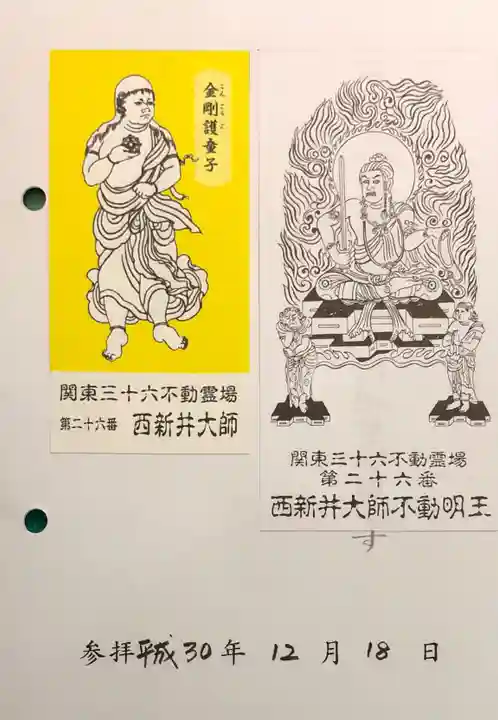 金剛護童子
こんごうごどうじ
関東三十六不動霊場
第二十六番 西新井大師
関東三十六不動霊場
第二十六番
西新井大師不動明王
す
参拝平成30年 12月 18日